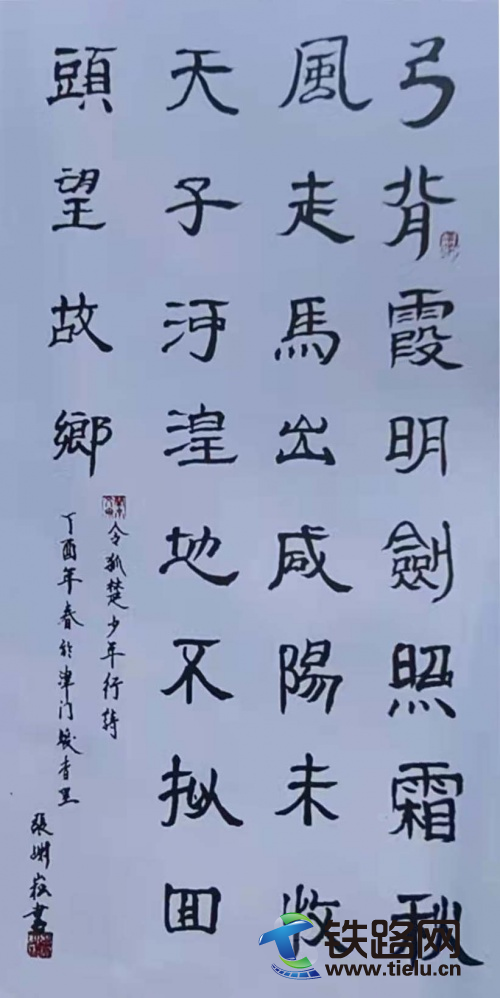 弓背霞明劍照霜秋
風走馬出咸陽未收
天子河湟地不拟回
頭望故鄉
令狐楚少年行詩
丁酉年春於津门
書
铁路网
www.tielu.cn